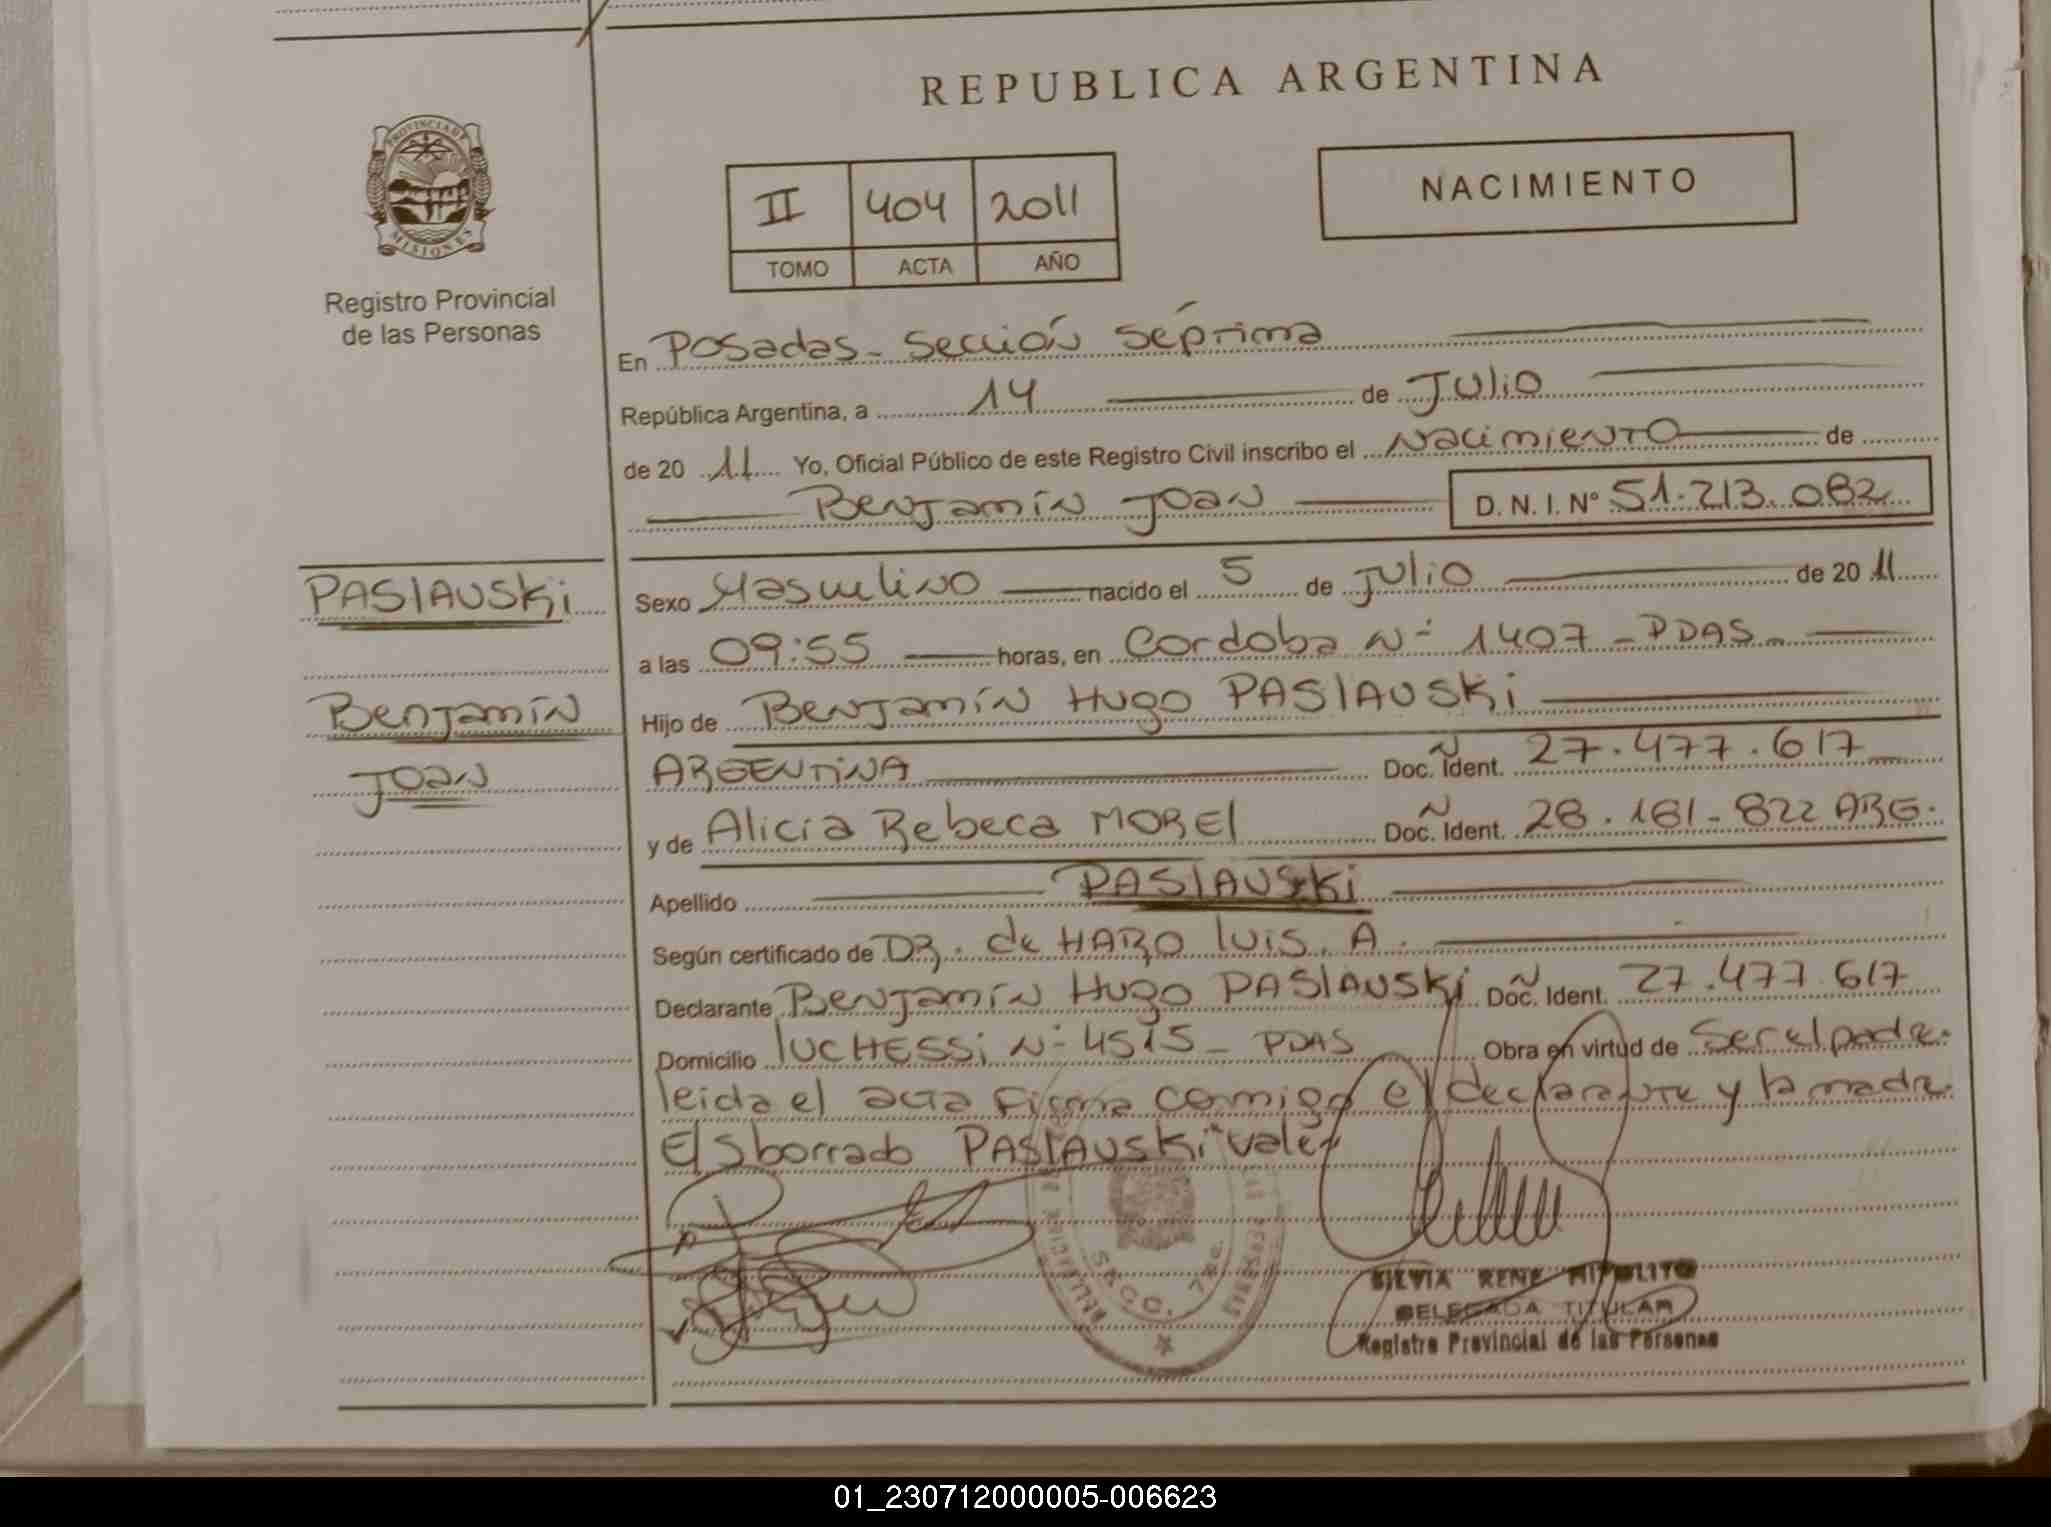 REPUBLICA ARGENTINA
PROVINCIA DE
MISIONES
Registro Provincial
de las Personas
II 404 2011
TOMO ACTA AÑO
NACIMIENTO
En Posadas - Sección Séptima
República Argentina, a 14 de Julio
de 20 11 Yo, Oficial Público de este Registro Civil inscribo el Nacimiento de
Benjamín Joan D. N. I. Nº 51.213.082
PASlAUSKi
Benjamín
Joan
Sexo Masculino nacido el 5 de Julio de 20 11
a las 09:55 horas, en Cordoba N- 1407 - PDAS -
Hijo de Benjamín Hugo PASlAUSKi
ARGENTINA Doc. Ident. 27.477.617
y de Alicia Rebeca MOREl Doc. Ident. 28.181-822 ARG.
Apellido PASlAUSKi
Según certificado de DR. de HARO luis. A.
Declarante Benjamín Hugo PASlAUSKi Doc. Ident. 27.477.617
Domicilio lUCHESSi N- 4515 - PDAS Obra en virtud de Ser el padre.
leida el acta firma conmigo el declarante y la madre.
E/S borrado PASlAUSKi "vale"
SECC. 7ma.
SILVIA RENE HIPOLITO
DELEGADA TITULAR
Registro Provincial de las Personas
01_230712000005-006623